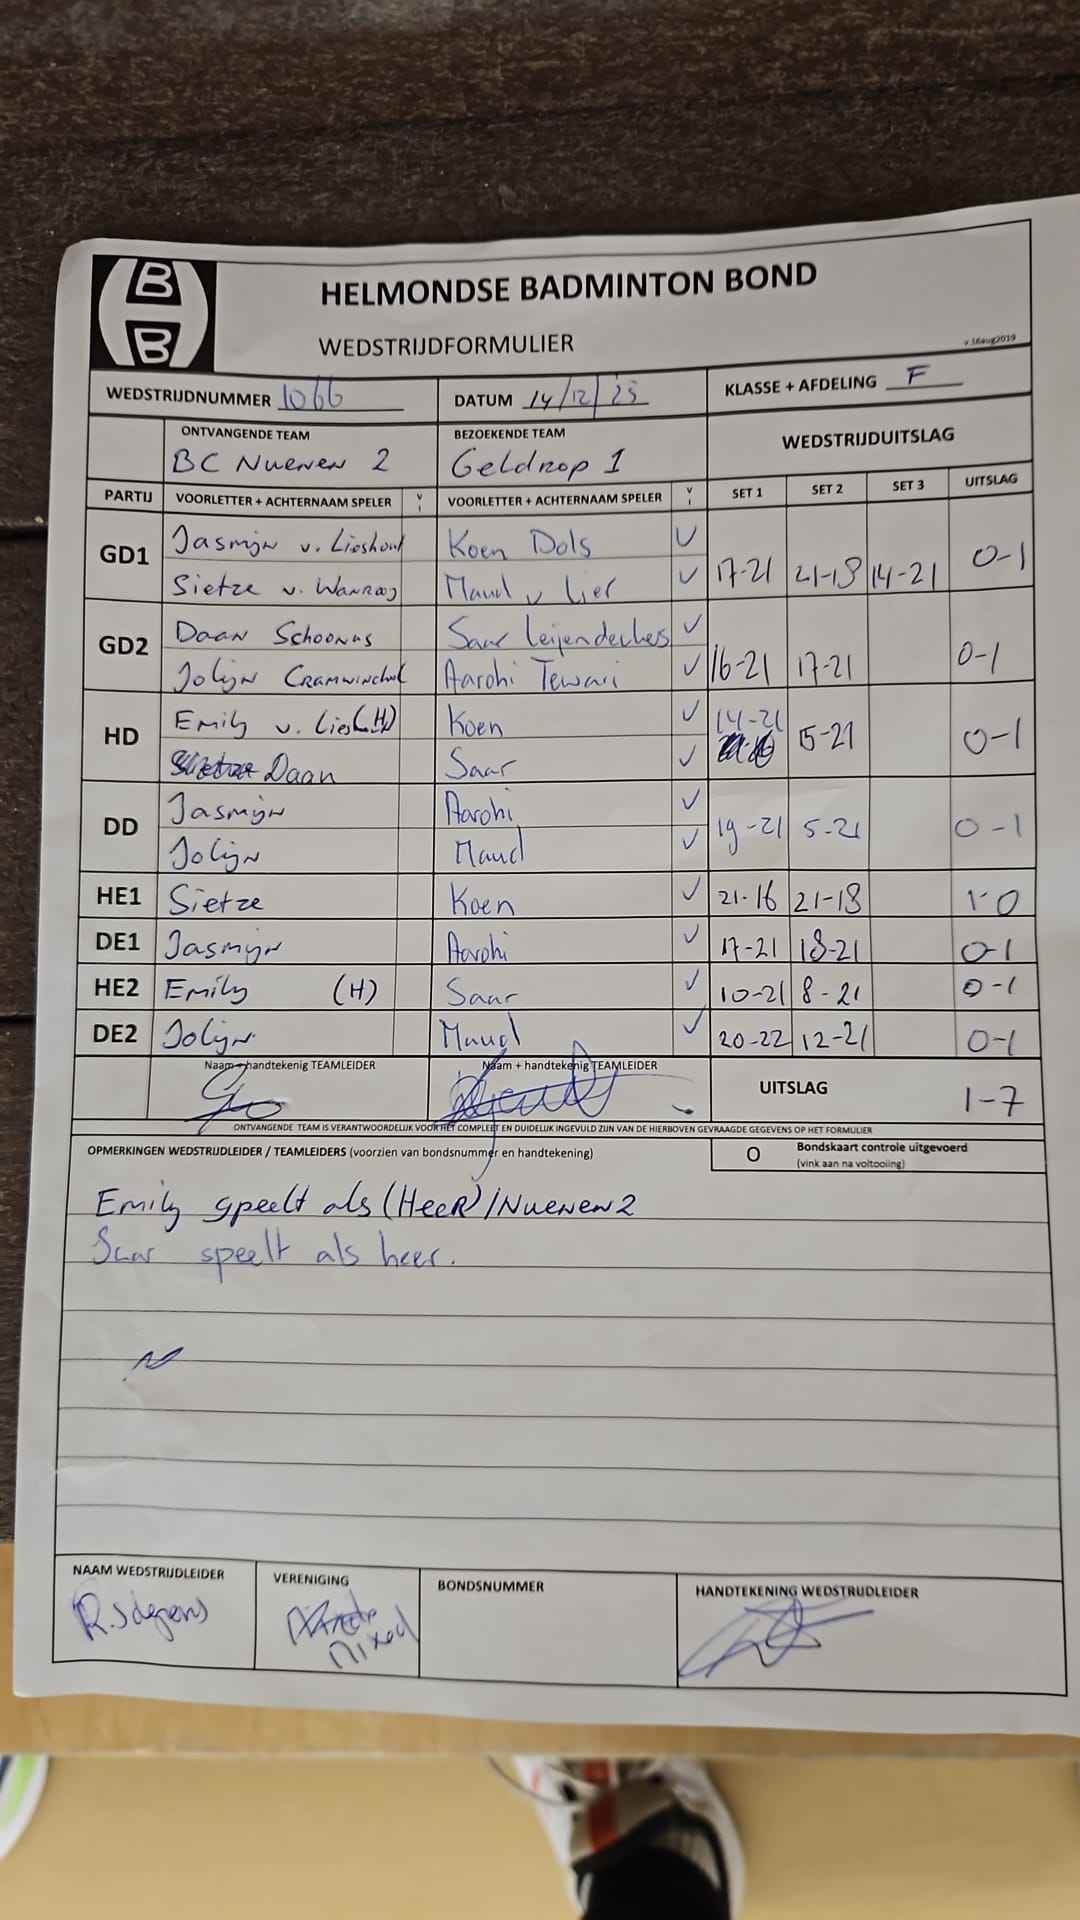 B
B
HELMONDSE BADMINTON BOND
WEDSTRIJDFORMULIER
v.16aug2019
WEDSTRIJDNUMMER 1066 DATUM 14/12/25 KLASSE + AFDELING F
ONTVANGENDE TEAM BEZOEKENDE TEAM WEDSTRIJDUITSLAG
BC Nuenen 2 Geldrop 1
PARTIJ VOORLETTER + ACHTERNAAM SPELER V I VOORLETTER + ACHTERNAAM SPELER V I SET 1 SET 2 SET 3 UITSLAG
GD1 Jasmijn v. Lieshout Koen Dols V
Sietze v. Wanrooij Maud v Lier V 17-21 21-18 14-21 0-1
GD2 Daan Schoonus Saar Leijendeckes V
Jolijn Aarohi Tewari V 16-21 17-21 0-1
HD Emily v. Lies (H) Koen V 14-21 15-21 0-1
Daan Saar V
DD Jasmijn Aarohi V
Jolijn Maud V 19-21 5-21 0-1
HE1 Sietze Koen V 21-16 21-18 1-0
DE1 Jasmijn Aarohi V 17-21 18-21 0-1
HE2 Emily (H) Saar V 10-21 8-21 0-1
DE2 Jolijn Maud V 20-22 12-21 0-1
Naam + handtekenig TEAMLEIDER Naam + handtekenig TEAMLEIDER UITSLAG 1-7
ONTVANGENDE TEAM IS VERANTWOORDELIJK VOOR HET COMPLEET EN DUIDELIJK INGEVULD ZIJN VAN DE HIERBOVEN GEVRAAGDE GEGEVENS OP HET FORMULIER
OPMERKINGEN WEDSTRIJDLEIDER / TEAMLEIDERS (voorzien van bondsnummer en handtekening) O Bondskaart controle uitgevoerd
(vink aan na voltooiing)
Emily speelt als (HeeR) / Nuenen 2
Saar speelt als heer.
NAAM WEDSTRIJDLEIDER VERENIGING BONDSNUMMER HANDTEKENING WEDSTRIJDLEIDER
Mixed